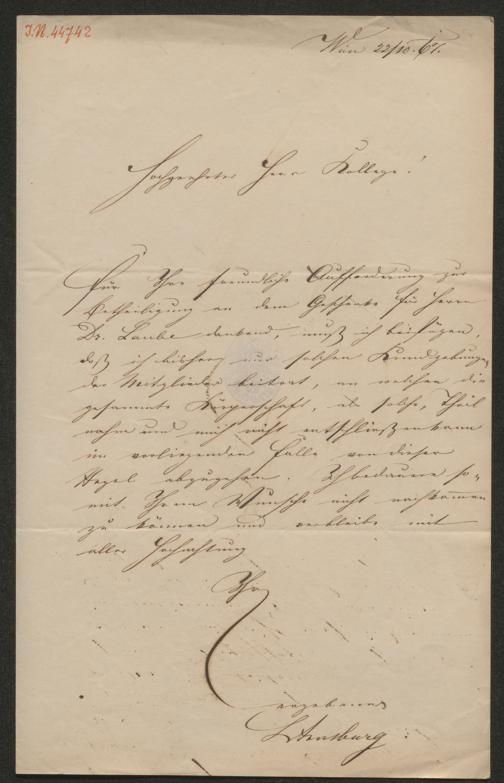 I.N. 44742
Wien 22/10. 67.
Hochgeehrter Herr Kollege!
Für Ihre freundliche Aufforderung zur
Betheiligung an dem Geschenke für Herrn
Dr. Laube dankend, muß ich beifügen,
daß ich bisher nur solchen Kundgebungen
der Mitglieder beitrat, an welchen die
gesammte Körperschaft, als solche, Theil
nahm und mich nicht entschließen kann
im vorliegenden Falle von dieser
Regel abzugehen. Ich bedauere so=
mit Ihrem Wunsche nicht nachkommen
zu können und verbleibe mit
aller Hochachtung
Ihr
ergebener
LArnsburg